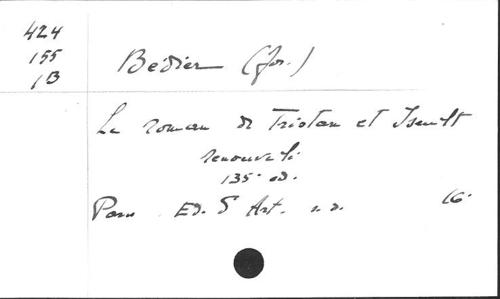 424
155
1B
Bédier (Jos.)
Le roman de Tristan et Iseult
renouvelé
135e ed.
Paris Ed. d'Art. s.d. 16°